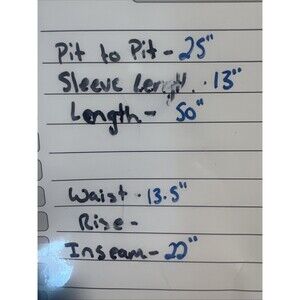 Pit to Pit - 25"
Sleeve Length - 13"
Length - 50"
Waist - 13.5"
Rise -
Inseam - 20"